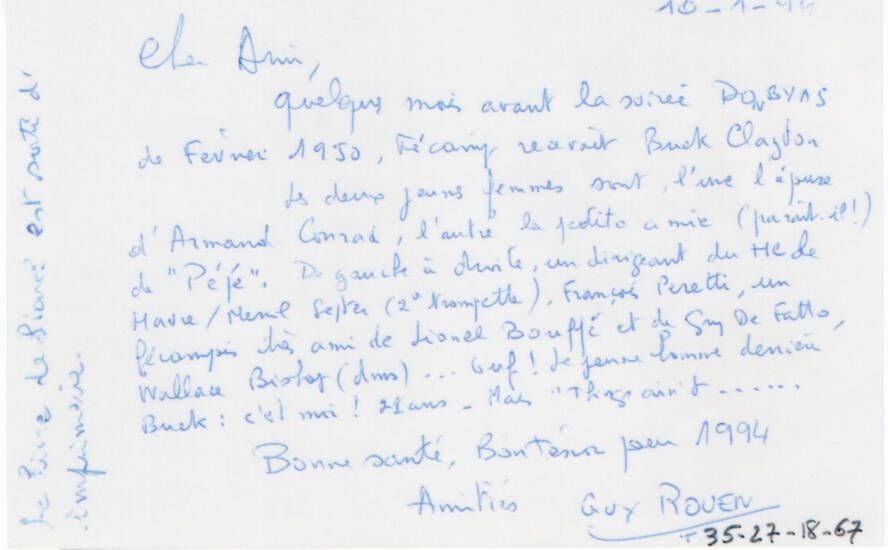 10-1-94
Cher Ami,
quelques mois avant la soirée DON BYAS
de Février 1950, Fécamp recevait Buck Clayton
Les deux jeunes femmes sont, l'une l'épouse
d'Armand Conrad, l'autre la petite amie (paraît-il!)
de "Péfé". De gauche à droite, un dirigeant du HC de
Havre/Merril Stepter (2° trompette), François Peretti, un
fécampois très ami de Lionel Bouffé et de Guy De Fatto,
Wallace Bishop (dms) ... Ouf! Le jeune homme derrière
Buck : c'est moi ! 21 ans - Mais "Things ain't ......
Bonne santé, pour 1994
Amitiés GUY ROUEN
T 35-27-18-67
Le livre de est sorti d'
imprimerie.